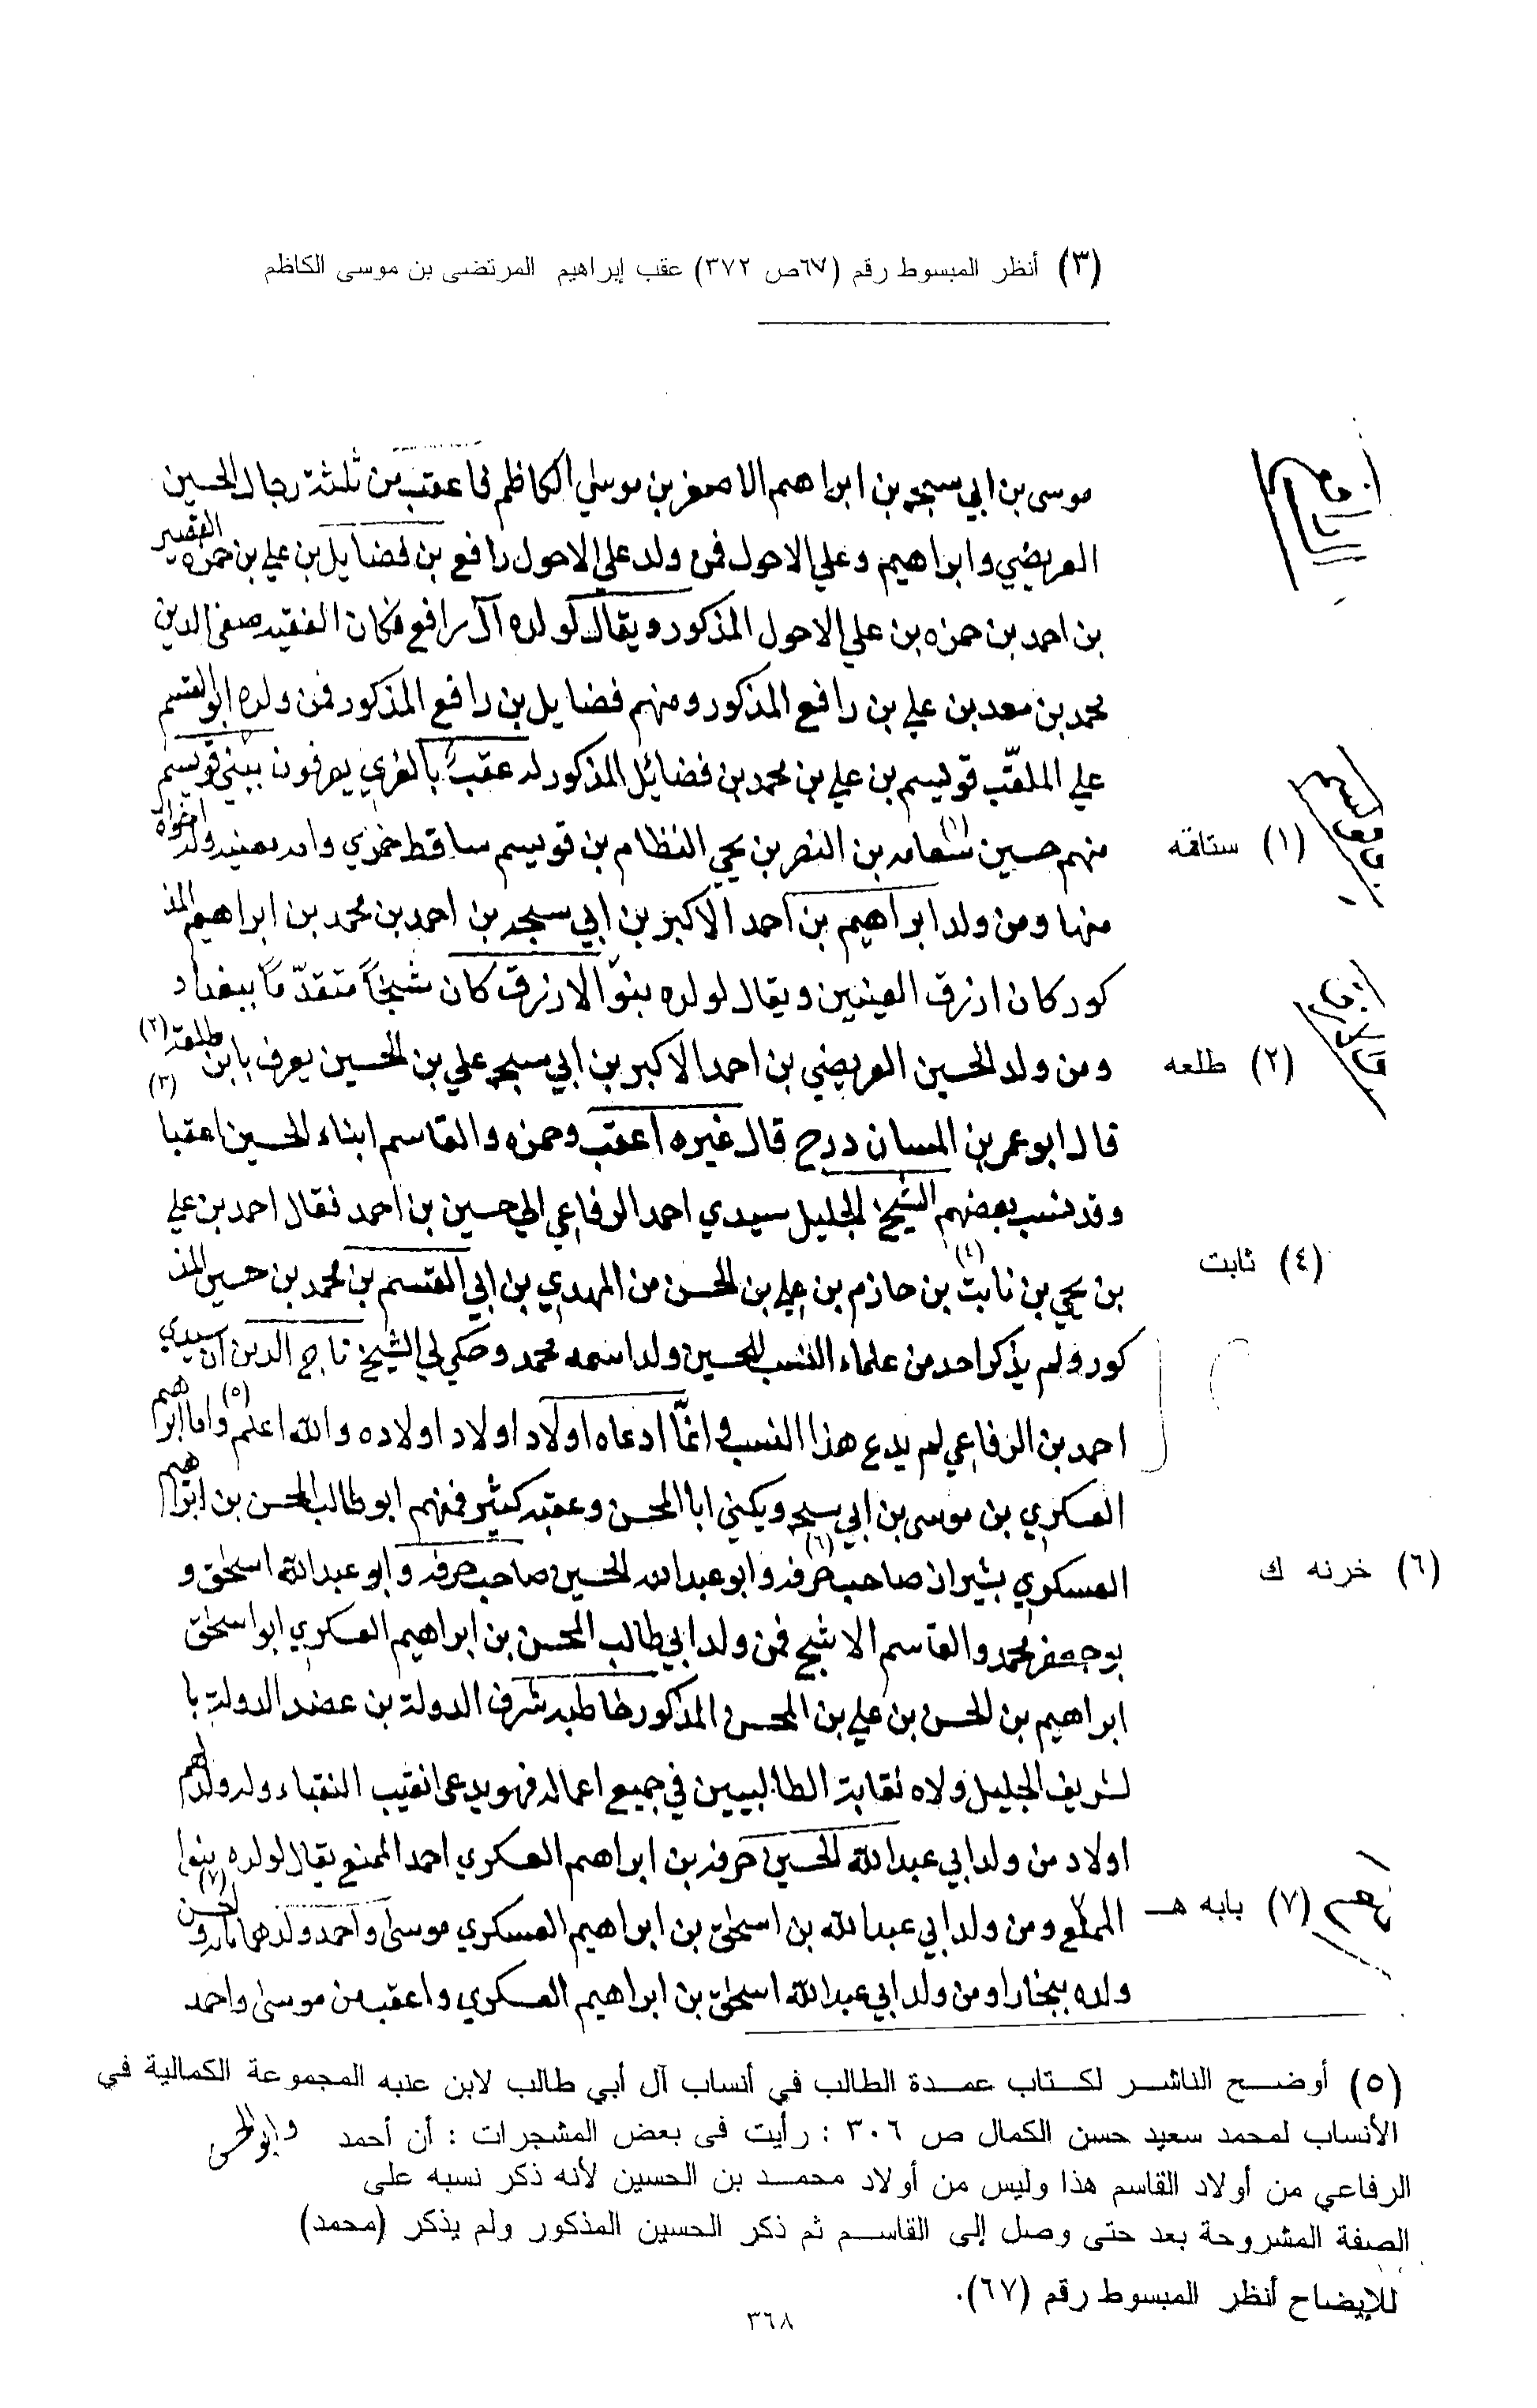 (٣) أنظر المبسوط رقم (٦٧ص ٣٧٢) عقب إبراهيم المرتضى بن موسى الكاظم
موسى بن ابي سبحه بن ابراهيم الاصغر بن موسى الكاظم فاعقب من ثلثة رجال الحسين
العريضي وابراهيم وعلي الاحول فمن ولد علي الاحول رافع بن فضايل بن علي بن حمزه القصير
بن احمد بن حمزه بن علي الاحول المذكور ويقال لولده آل رافع فكان الفقيه صفي الدين
محمد بن معد بن علي بن رافع المذكور ومنهم فضايل بن رافع المذكور فمن ولده ابو القسم
علي الملقّب قويسم بن علي بن محمد بن فضائل المذكور له عقب بالغري يعرفون ببني قويسم
منهم حسين (١) بن النصر بن يحيي النظام بن قويسم ساقط خمري وامه مغنيه وله اخواة
(١) ستاقه
منها ومن ولد ابراهيم بن احمد الاكبر بن ابي سبحه بن احمد بن محمد بن ابراهيم المذ
كور كان ازرق العينين ويقال لولده بنوا الازرق كان شيخاً متقدّماً ببغداد
ومن ولد الحسين العريضي بن احمد الاكبر بن ابي سبحه علي بن الحسين يعرف بابن طلعة (٢)
(٢) طلعه
(٣)
قال ابو عمر بن درج قال غيره اعقب وحمزه والقاسم ابناء الحسين اعقبا
وقد نسب بعضهم الشيخ الجليل سيدي احمد الرفاعي الي حسين بن احمد فقال احمد بن علي
بن يحيي بن نابت (٤) بن حازم بن علي بن الحسن من المهدي بن ابي القسم بن محمد بن حسين المذ
(٤) ثابت
كور ولم يذكر احد من علماء النسب للحسين ولدا اسمه محمد وحكي لي الشيخ تاج الدين ان سيدي
احمد بن الرفاعي لم يدع هذا النسب وانمّا ادعاه اولاد اولاد اولاده والله اعلم (٥) واما ابراهيم
العسكري بن موسى بن ابي سبحه ويكنى ابا المحسن وعقبه كثير فمنهم ابو طالب المحسن بن ابراهيم
العسكري بشيراز صاحب خرفه (٦) وابو عبد الله الحسين صاحب خرفه وابو عبد الله اسحٰق و
(٦) خرنه ك
بو جعفر محمد والقاسم الاشج فمن ولد ابي طالب المحسن بن ابراهيم العسكري ابو اسحٰق
ابراهيم بن الحسن بن علي بن المحسن المذكور خاطبه شرف الدولة بن عضد الدولة با
لشريف الجليل ولاه نقابة الطالبيين في جميع اعماله فهو يدعى نقيب النقباء وله ولدهم
اولاد من ولد ابي عبد الله الحسين خرفه بن ابراهيم العسكري احمد الممنع يقال لولده بنوا
ومن ولد ابي عبد الله بن اسحٰق بن ابراهيم العسكري موسىٰ واحمد ولدهما (٧)
(٧) بابه هـ
ولده ببخارا ومن ولد ابي عبد الله اسحٰق بن ابراهيم العسكري واعقب من موسىٰ واحمد
(٥) أوضح الناشر لكتاب عمدة الطالب في أنساب آل أبي طالب لابن عنبه المجموعة الكمالية في
الأنساب لمحمد سعيد حسن الكمال ص ٣٠٦ : رأيت فى بعض المشجرات : أن أحمد
الرفاعي من أولاد القاسم هذا وليس من أولاد محمد بن الحسين لأنه ذكر نسبه على
الصفة المشروحة بعد حتى وصل إلى القاسم ثم ذكر الحسين المذكور ولم يذكر (محمد)
للإيضاح أنظر المبسوط رقم (٦٧).
٣٦٨